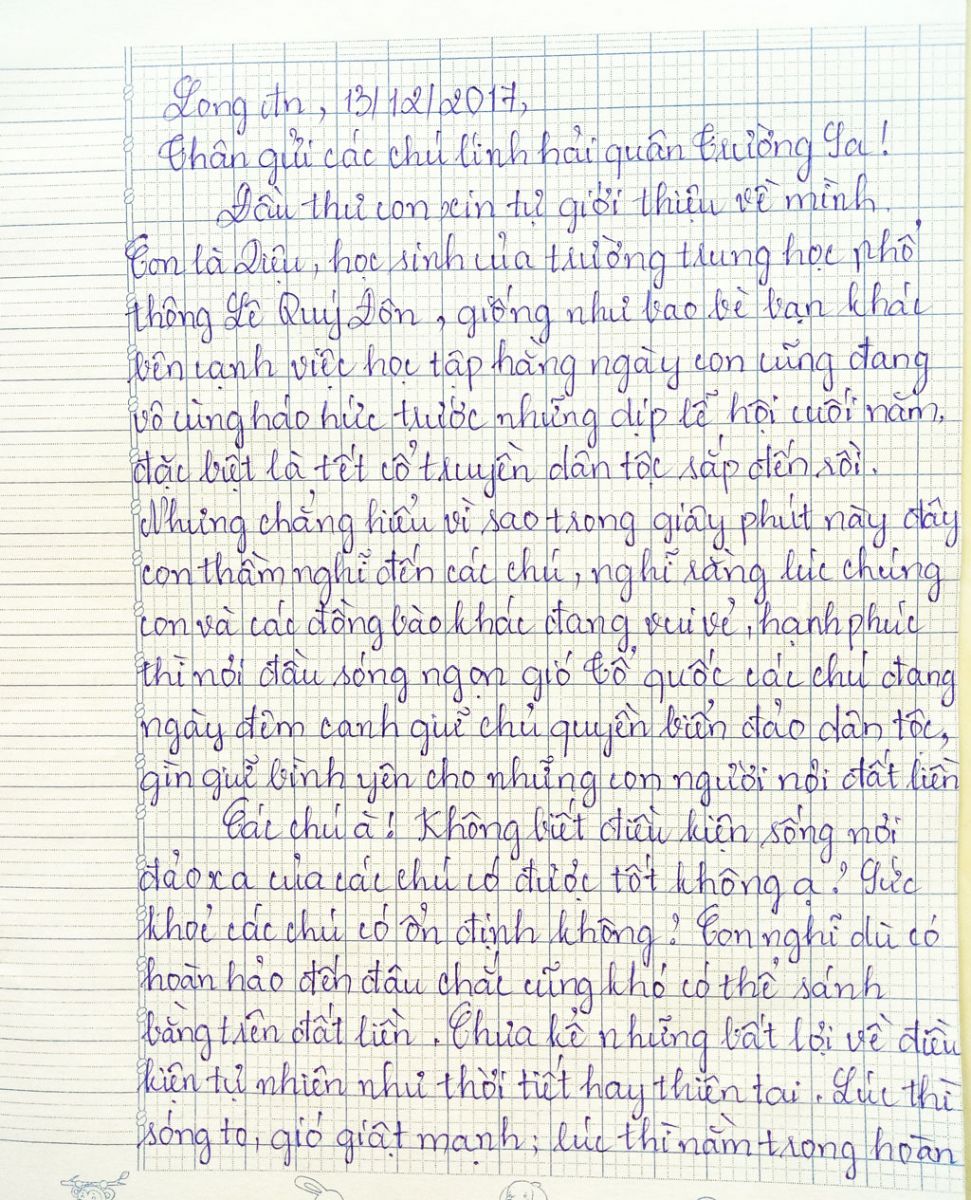 Long An, 13/12/2017,
Thân gửi các chú lính hải quân Trường Sa!
Đầu thư con xin tự giới thiệu về mình.
Con là Diệu, học sinh của trường trung học phổ
thông Lê Quý Đôn, giống như bao bè bạn khác
bên cạnh việc học tập hằng ngày con cũng đang
vô cùng háo hức trước những dịp lễ hội cuối năm,
đặc biệt là tết cổ truyền dân tộc sắp đến rồi.
Nhưng chẳng hiểu vì sao trong giây phút này đây
con thầm nghĩ đến các chú, nghĩ rằng lúc chúng
con và các đồng bào khác đang vui vẻ, hạnh phúc
thì nơi đầu sóng ngọn gió Tổ quốc các chú đang
ngày đêm canh giữ chủ quyền biển đảo dân tộc,
gìn giữ bình yên cho những con người nơi đất liền
Các chú à! Không biết điều kiện sống nơi
đảo xa của các chú có được tốt không ạ? Sức
khoẻ các chú có ổn định không? Con nghĩ dù có
hoàn hảo đến đâu chắc cũng khó có thể sánh
bằng trên đất liền. Chưa kể những bất lợi về điều
kiện tự nhiên như thời tiết hay thiên tai. Lúc thì
sóng to, gió giật mạnh; lúc thì nằm trong hoàn